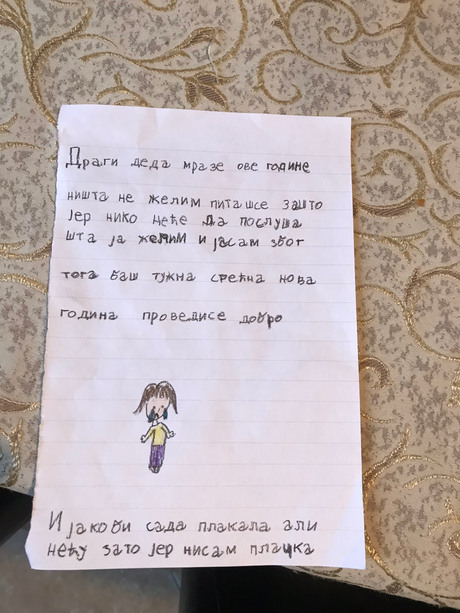 Драги деда мразе ове године
ништа не желим питашсе зашто
јер нико неће да послуша
шта ја желим и јасам због
тога баш тужна срећна нова
година проведисе добро
И јакоби сада плакала али
нећу зато јер нисам плачка